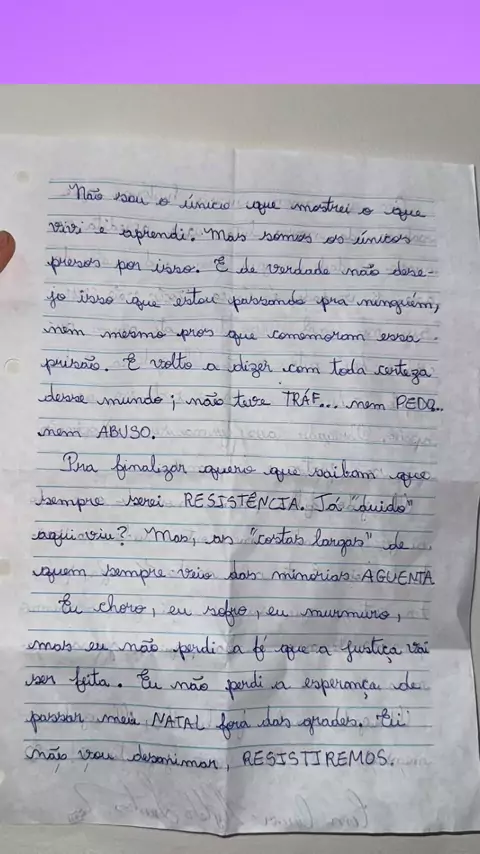 Não sou o único que mostrei o que
vivi e aprendi. Mas somos os únicos
presos por isso. E de verdade não dese-
jo isso que estou passando pra ninguém,
nem mesmo pros que comemoram essa
prisão. E volto a dizer com toda certeza
desse mundo; não teve TRÁF... nem PEDO..
nem ABUSO.
Pra finalizar quero que saibam que
sempre serei RESISTÊNCIA. Tá "duido"
aqui viu? Mas, as "costas largas" de
quem sempre veio das minorias AGUENTA
Eu choro, eu sofro, eu murmuro,
mas eu não perdi a fé que a justiça vai
ser feita. Eu não perdi a esperança de
passar meu NATAL fora das grades. Eu
não vou desanimar, RESISTIREMOS.